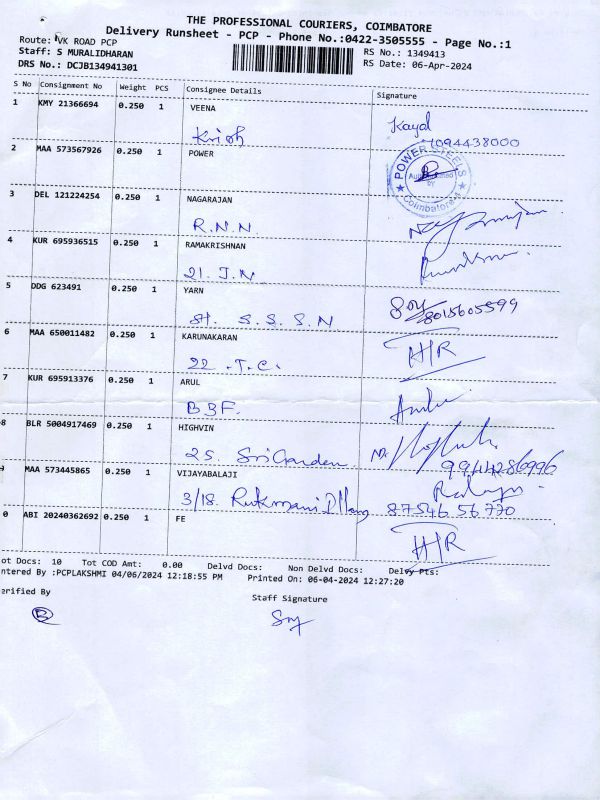 THE PROFESSIONAL COURIERS, COIMBATORE
Delivery Runsheet - PCP - Phone No.:0422-3505555 - Page No.:1
Route: VK ROAD PCP
RS No.: 1349413
Staff: S MURALIDHARAN
RS Date: 06-Apr-2024
DRS No.: DCJB134941301
S No Consignment No Weight PCS Consignee Details Signature
1 KMY 21366694 0.250 1 VEENA
Krish Kayal
1094438000
2 MAA 573567926 0.250 1 POWER
POWER STEELS
Coimbatore-4
3 DEL 121224254 0.250 1 NAGARAJAN
R.N.N.
4 KUR 695936515 0.250 1 RAMAKRISHNAN
21. J.N.
5 DDG 623491 0.250 1 YARN
St. S.S.S.N 8015605599
6 MAA 650011482 0.250 1 KARUNAKARAN
22 .T.C. H/R
7 KUR 695913376 0.250 1 ARUL
B3F.
8 BLR 5004917469 0.250 1 HIGHVIN
25. Sri Garden
9944286996
MAA 573445865 0.250 1 VIJAYABALAJI
3/18. Rukmani 87546 56 770
0 ABI 20240362692 0.250 1 FE
H/R
ot Docs: 10 Tot COD Amt: 0.00 Delvd Docs: Non Delvd Docs: Delvy Pts:
ntered By :PCPLAKSHMI 04/06/2024 12:18:55 PM Printed On: 06-04-2024 12:27:20
erified By
Staff Signature
B